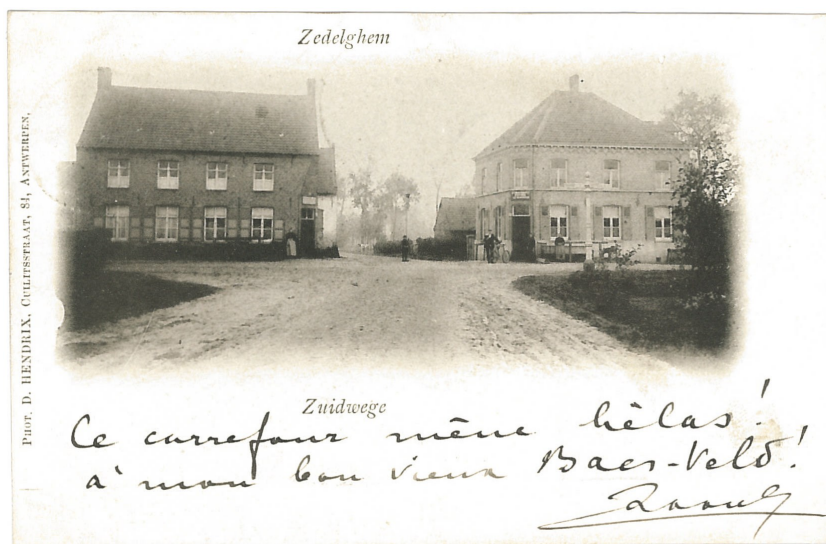 Zedelghem
Phot. D. HENDRIX, Cuilitsstraat, 81, Antwerpen,
Zuidwege
Ce carrefour mène hélas!
à mon bon vieux Baes-Veld!
Raoul